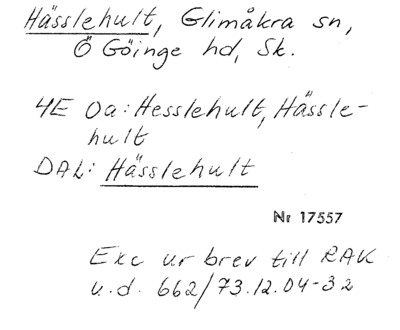 Hässlehult, Glimåkra sn,
Ö Göinge hd, Sk.
4E 0a: Hesslehult, Hässle-
hult
DAL: Hässlehult
Nr 17557
Exc ur brev till RAK
u.d. 662/73.12.04-32